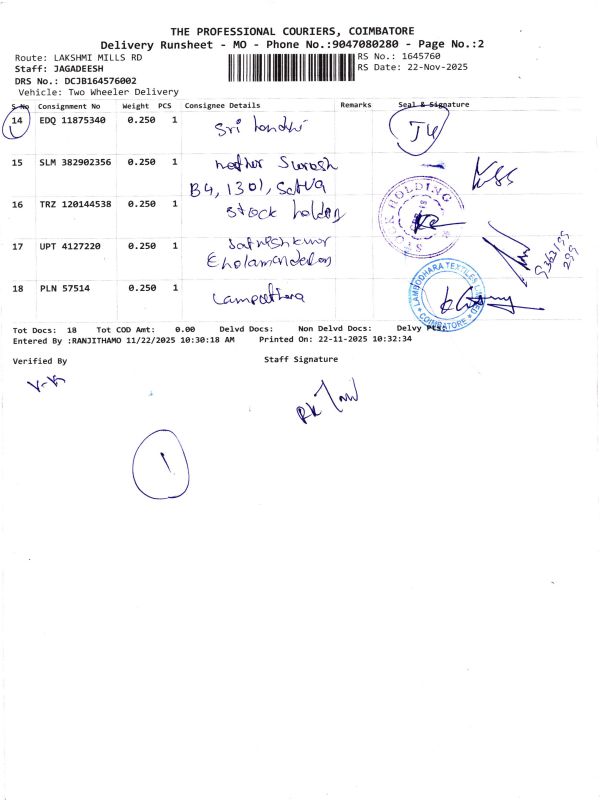 THE PROFESSIONAL COURIERS, COIMBATORE
Delivery Runsheet - MO - Phone No.:9047080280 - Page No.:2
Route: LAKSHMI MILLS RD
RS No.: 1645760
Staff: JAGADEESH
RS Date: 22-Nov-2025
DRS No.: DCJB164576002
Vehicle: Two Wheeler Delivery
S.No Consignment No Weight PCS Consignee Details Remarks Seal & Signature
14 EDQ 11875340 0.250 1 Sri
15 SLM 382902356 0.250 1
B4, 1301,
16 TRZ 120144538 0.250 1 Stock holding
STOCK HOLDING
17 UPT 4127220 0.250 1 Satheshkumar
18 PLN 57514 0.250 1
LAMBODHARA TEXTILES LIMITED
COIMBATORE
Tot Docs: 18 Tot COD Amt: 0.00 Delvd Docs: Non Delvd Docs: Delvy Pts:
Entered By :RANJITHAMO 11/22/2025 10:30:18 AM Printed On: 22-11-2025 10:32:34
Verified By Staff Signature